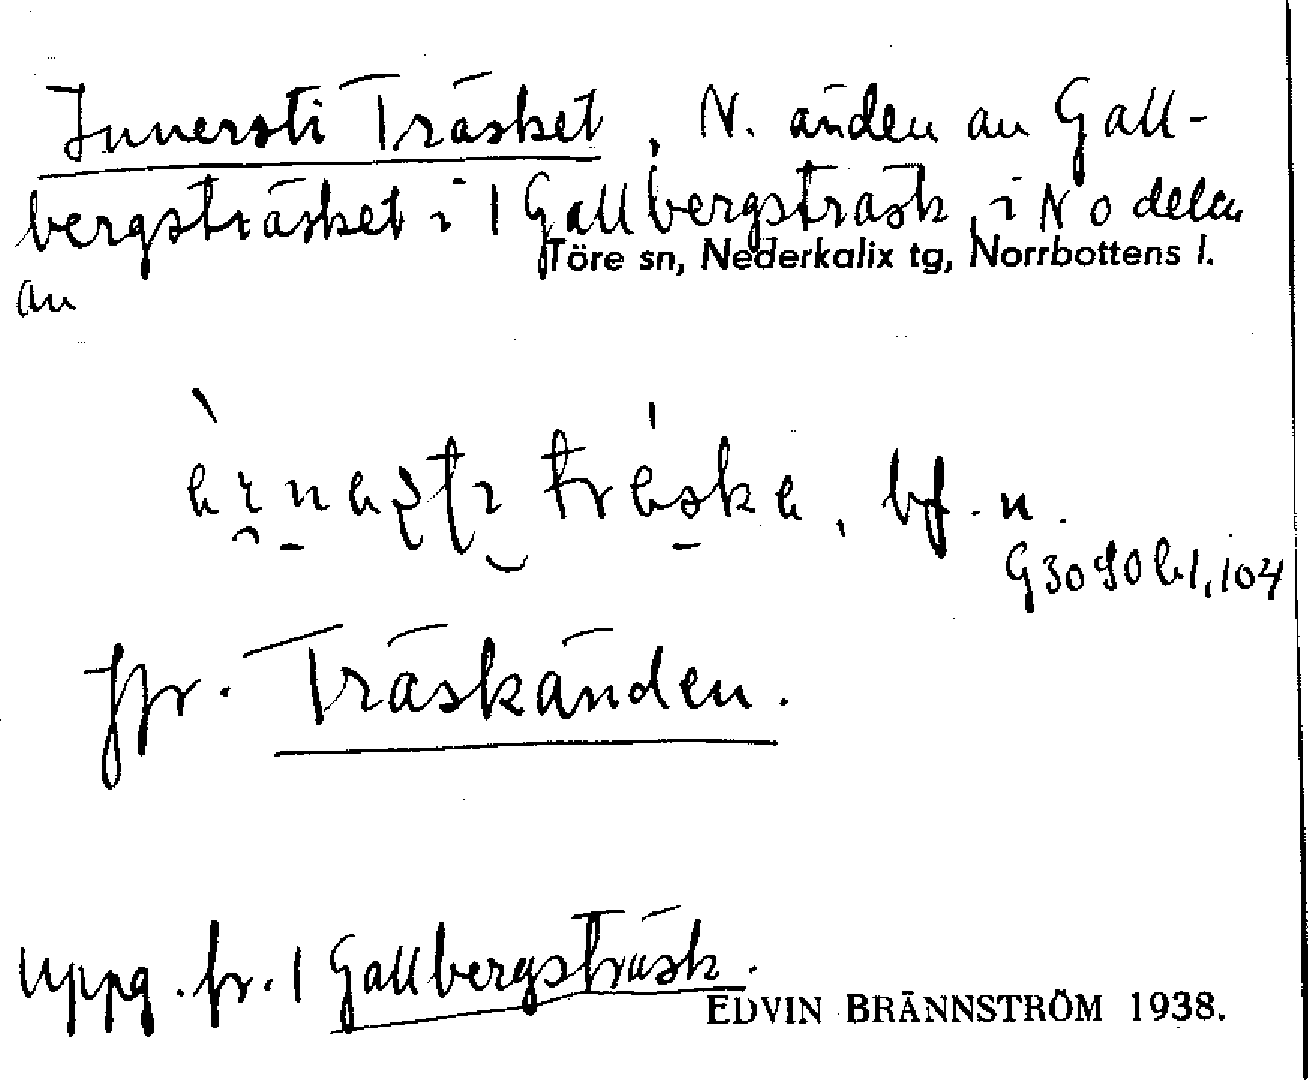 Innersti Träsket, N. änden av Gall-
bergsträsket i 1 Gallbergsträsk, i No delen
Töre sn, Nederkalix tg, Norrbottens l.
av
bf. n.
G3090 bl, 104
Jfr. Träskänden.
Uppg. fr. 1 Gallbergsträsk.
EDVIN BRÄNNSTRÖM 1938.